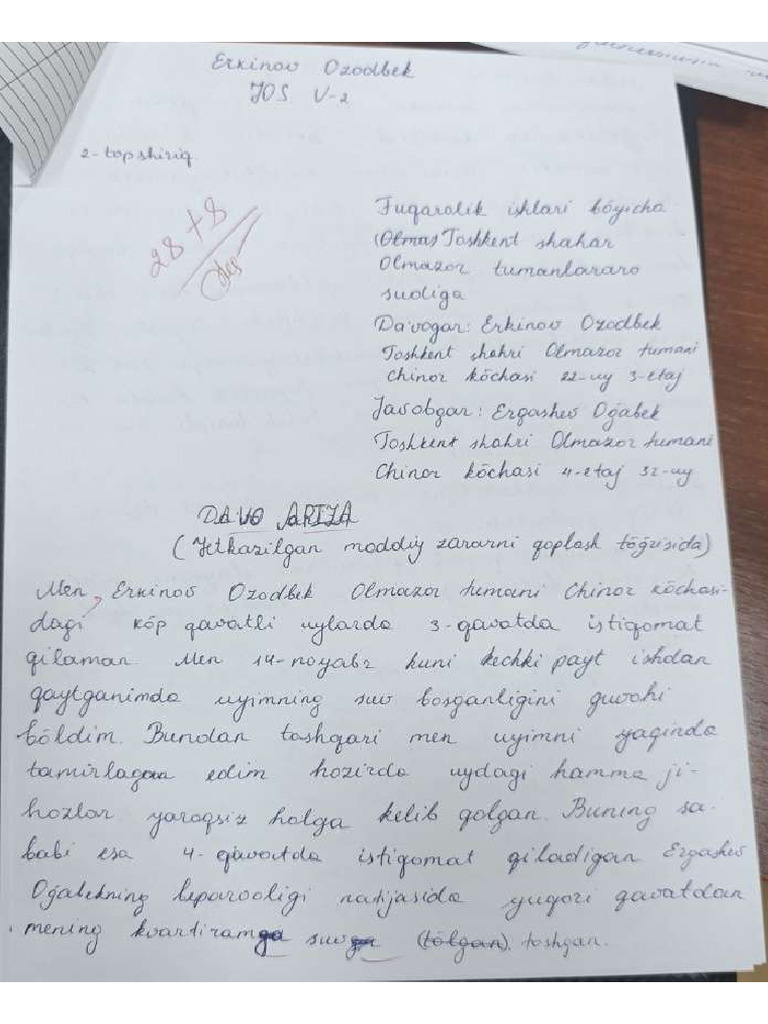 Erkinov Ozodbek
JOS V-2
2-topshiriq
28+8
Fuqarolik ishlari bóyicha
(Olma) Toshkent shahar
Olmazor tumanlararo
sudiga
Da'vogar: Erkinov Ozodbek
Toshkent shahri Olmazor tumani
Chinor kóchasi 22-uy 3-etaj
Javobgar: Ergashev Oǵabek
Toshkent shahri Olmazor tumani
Chinor kóchasi 4-etaj 32-uy
DAVO ARIZA
(Yetkazilgan moddiy zararni qoplash tóǵrisida)
Men, Erkinov Ozodbek Olmazor tumani Chinor kóchasi-
dagi kóp qavatli uylarda 3-qavatda istiqomat
qilaman. Men 14-noyabr kuni kechki payt ishdan
qaytganimda uyimning suv bosganligini guvohi
bóldim. Bundan tashqari men uyimni yaqinda
tamirlagan edim hozirda uydagi hamma ji-
hozlar yaroqsiz holga kelib qolgan. Buning sa-
babi esa 4-qavatda istiqomat qiladigan Ergashev
Oǵabekning beparooligi natijasida yuqori qavatdan
mening kvartiramga suvga (tólgan). toshgan.